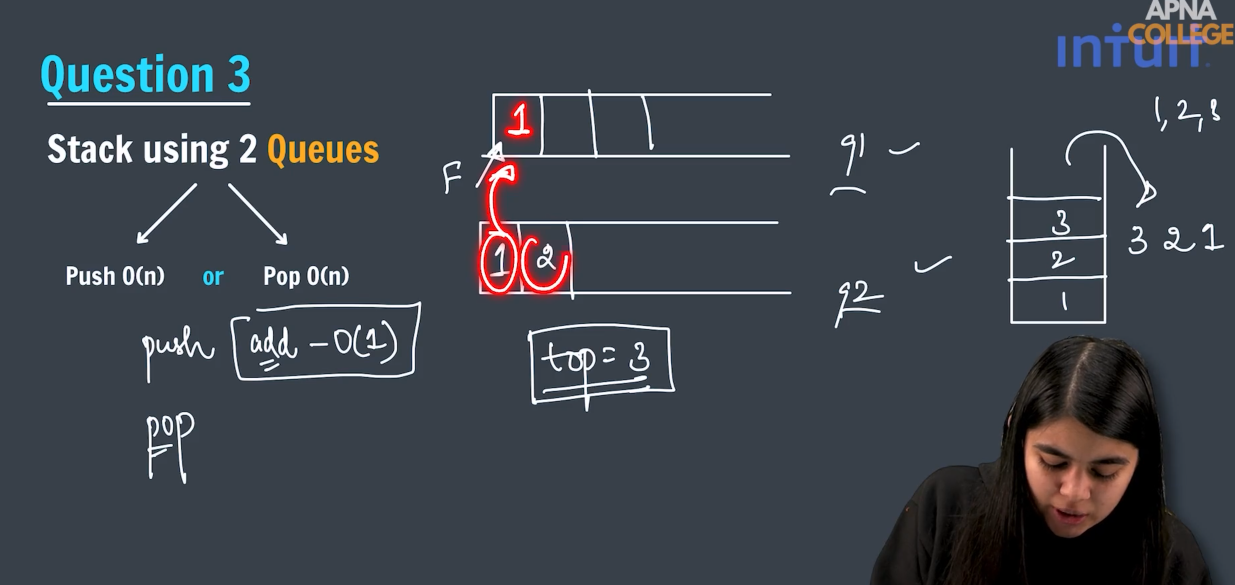 APNA
COLLEGE
intuit.
Question 3
Stack using 2 Queues
Push O(n) or Pop O(n)
push add - O(1)
pop
1
F
1 2
top = 3
q1
q2
1, 2, 3
3
2
1
3 2 1